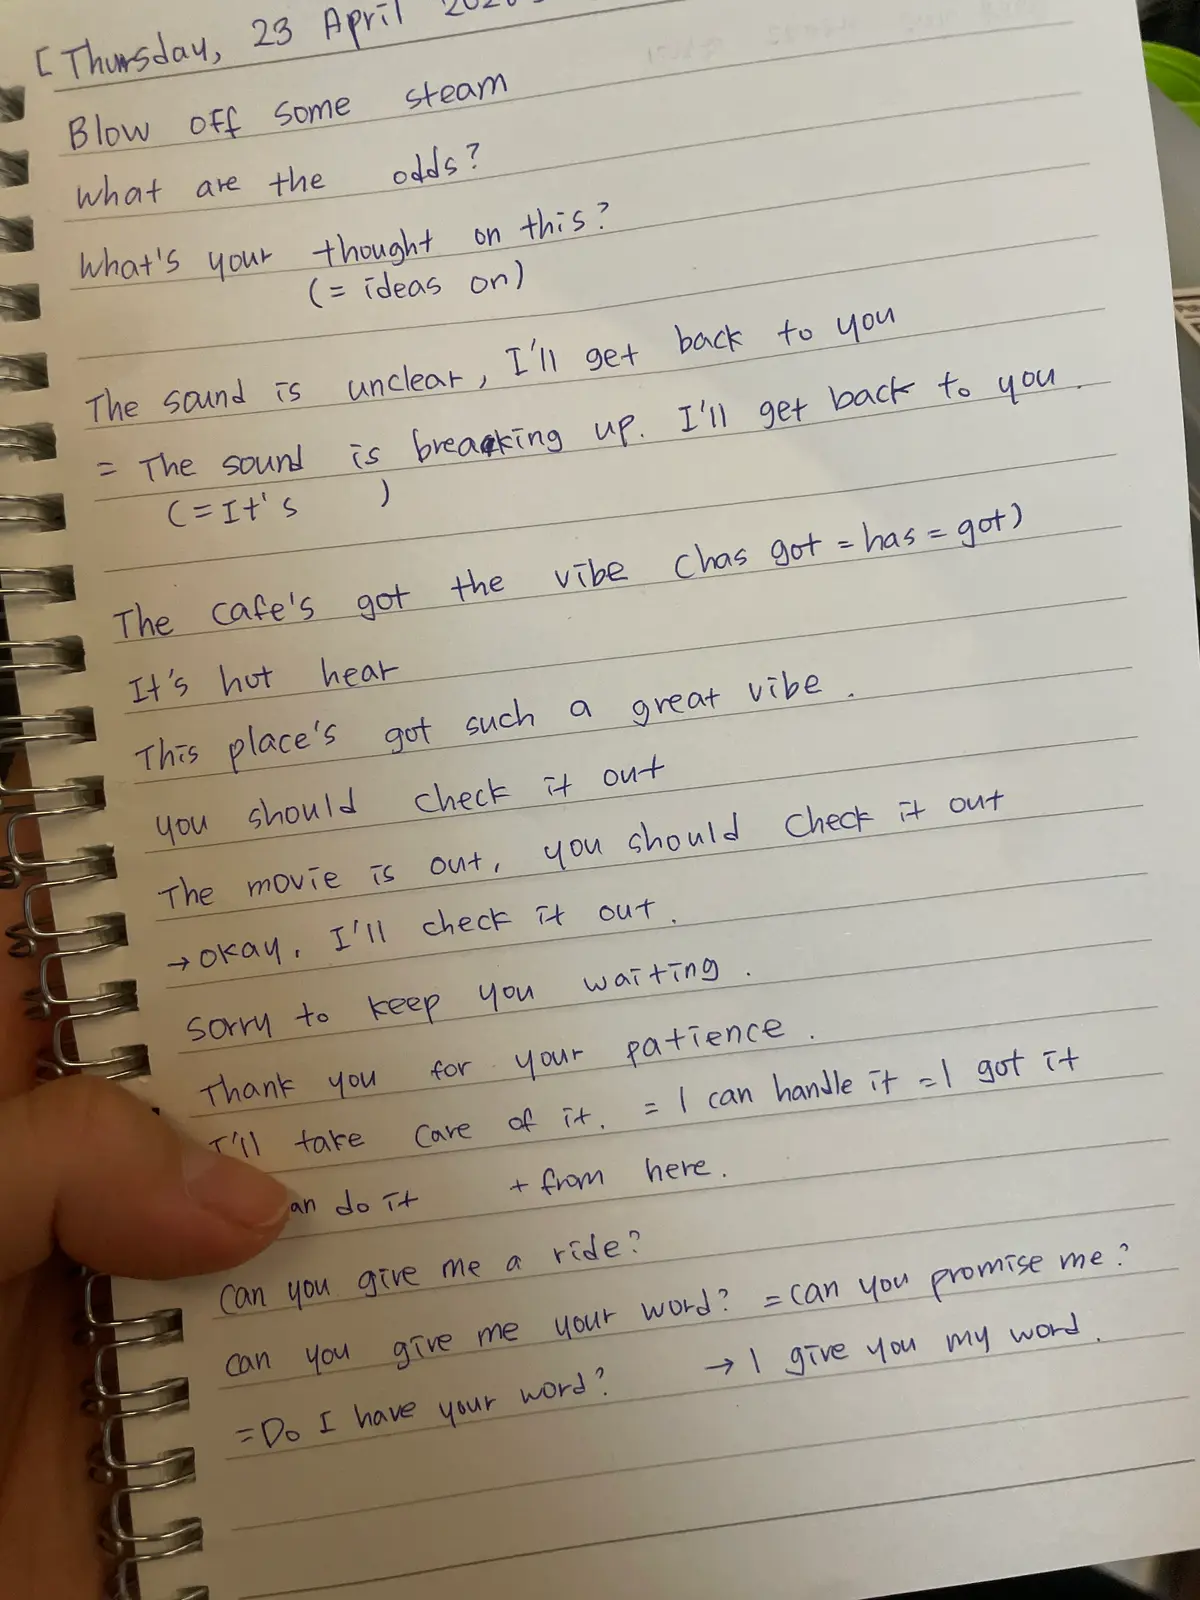 [Thursday, 23 April
Blow off some steam
What are the odds?
What's your thought on this?
(= ideas on)
The sound is unclear, I'll get back to you
= The sound is breaking up. I'll get back to you.
(= It's )
The cafe's got the vibe (has got = has = got)
It's hot hear
This place's got such a great vibe.
you should check it out
The movie is out, you should check it out
→ okay, I'll check it out.
Sorry to keep you waiting.
Thank you for your patience.
I'll take care of it. = I can handle it = I got it
an do it + from here.
Can you give me a ride?
Can you give me your word? = Can you promise me?
= Do I have your word? → I give you my word.